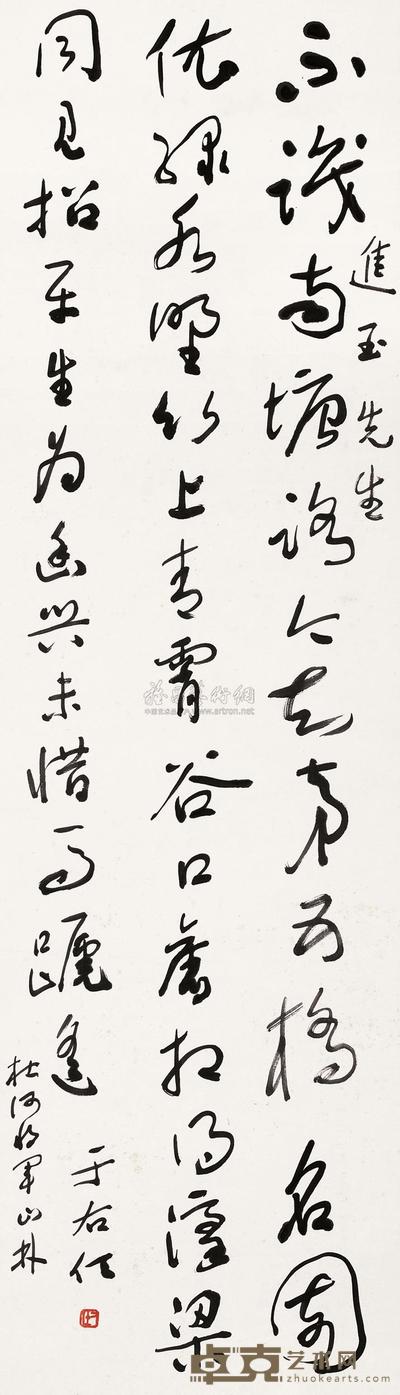 不识南塘路今知第五桥名园
依绿水野竹上青霄谷口旧相得濠梁
同见招平生为幽兴未惜马蹄遥
進玉先生
杜何将军山林
于右任
www.artron.net
卓克艺术网
www.zhuokearts.com